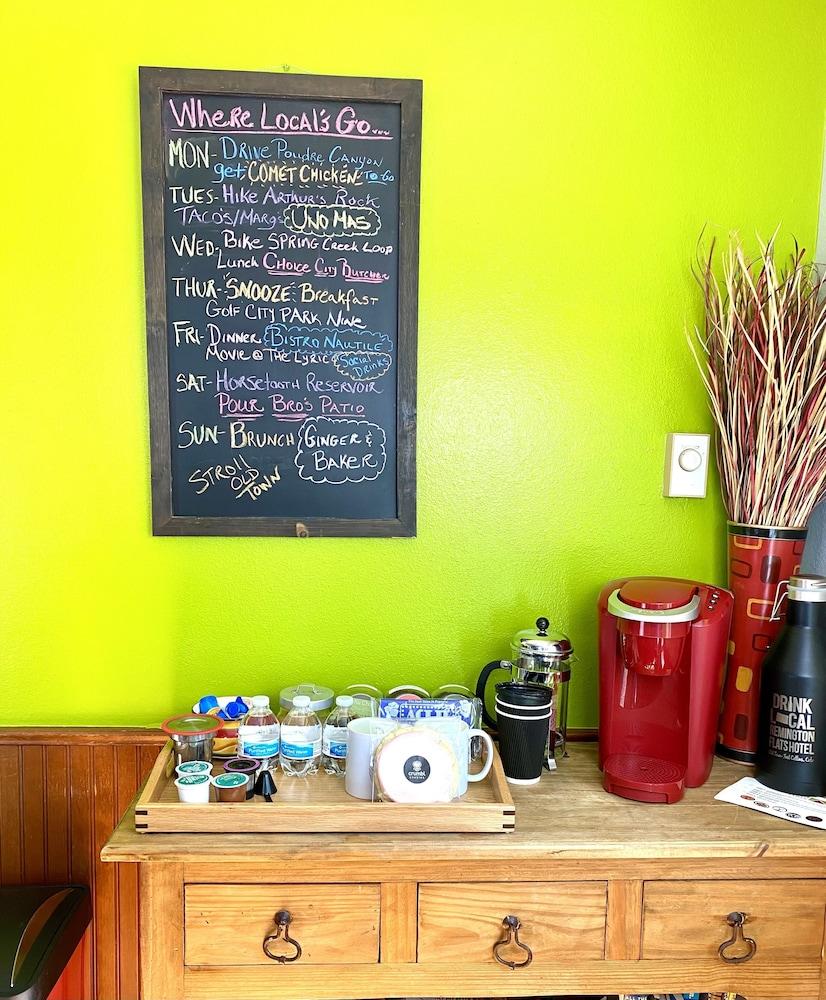 Where Local's Go...
MON- Drive Poudre Canyon
get COMET CHICKEN To Go
TUES- Hike Arthur's Rock
Taco's/Marg's UNO MAS
WED- Bike Spring Creek Loop
Lunch Choice City Butcher
THUR- "SNOOZE" Breakfast
Golf CITY PARK Nine
FRI- Dinner BISTRO NAUTILE
Movie @ The Lyric & Social
Drinks
SAT- Horsetooth Reservoir
Pour Bro's Patio
SUN- Brunch GINGER &
BAKER
Stroll
OLD
TOWN
Purified Water
crumbl
COOKIES
DRINK
LOCAL
REMINGTON
FLATS HOTEL